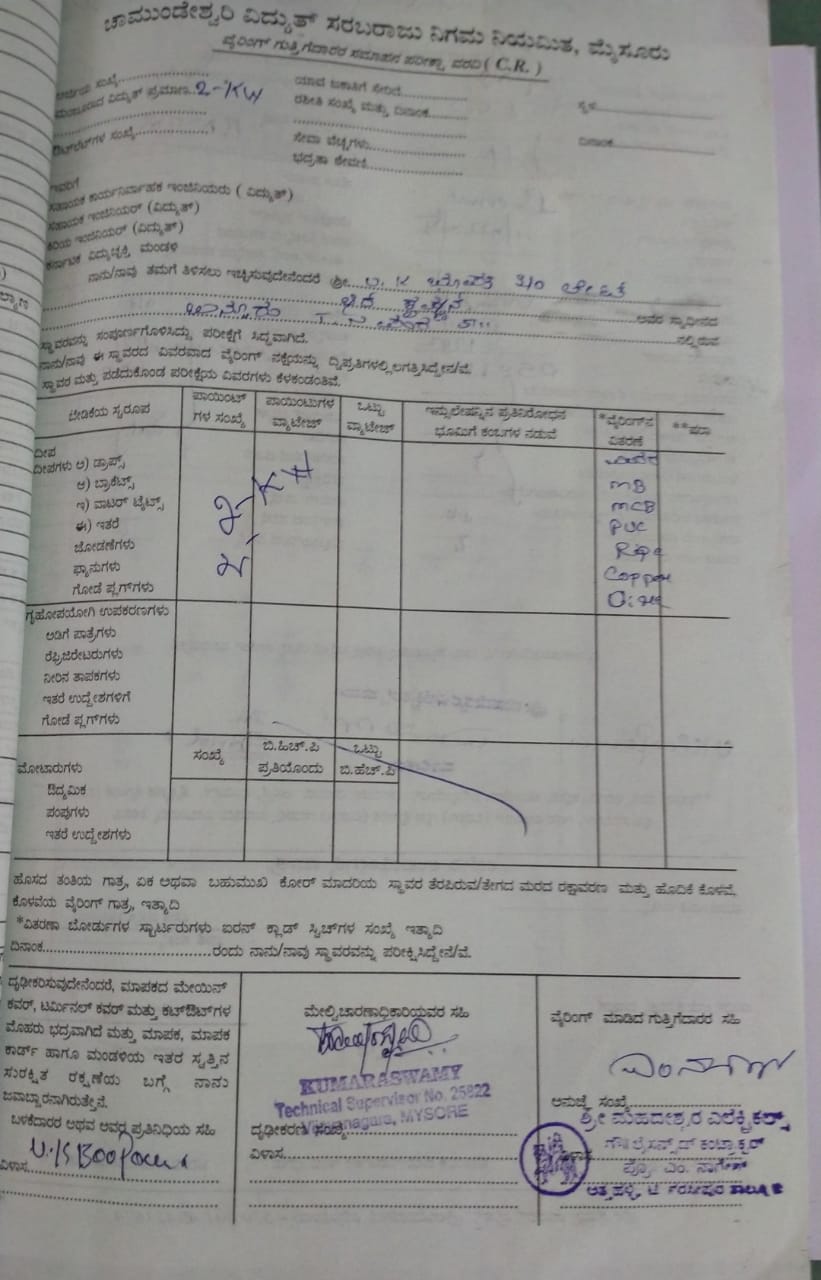 ಚಾಮುಂಡೇಶ್ವರಿ ವಿದ್ಯುತ್ ಸರಬರಾಜು ನಿಗಮ ನಿಯಮಿತ, ಮೈಸೂರು
ವೈರಿಂಗ್ ಗುತ್ತಿಗೆದಾರರ ಸಮಾಪನ ಪರೀಕ್ಷಾ ವರದಿ ( C.R. )
ಅರ್ಜಿಯ ಸಂಖ್ಯೆ
ಮಂಜೂರಾದ ವಿದ್ಯುತ್ ಪ್ರಮಾಣ 2-KW
ಔಟ್‌ಲೆಟ್‌ಗಳ ಸಂಖ್ಯೆ
ಯಾವ ಜಕಾತಿಗೆ ಸೇರಿದೆ
ರಶೀತಿ ಸಂಖ್ಯೆ ಮತ್ತು ದಿನಾಂಕ
ಸೇವಾ ವೆಚ್ಚಗಳು
ಭದ್ರತಾ ಠೇವಣಿ
ಸ್ಥಳ
ದಿನಾಂಕ
ಇವರಿಗೆ
ಸಹಾಯಕ ಕಾರ್ಯನಿರ್ವಾಹಕ ಇಂಜಿನಿಯರು ( ವಿದ್ಯುತ್)
ಸಹಾಯಕ ಇಂಜಿನಿಯರ್ (ವಿದ್ಯುತ್)
ಕಿರಿಯ ಇಂಜಿನಿಯರ್ (ವಿದ್ಯುತ್)
ಕರ್ನಾಟಕ ವಿದ್ಯುಚ್ಛಕ್ತಿ ಮಂಡಳಿ
ನಾನು/ನಾವು ತಮಗೆ ತಿಳಿಸಲು ಇಚ್ಛಿಸುವುದೇನೆಂದರೆ ಶ್ರೀ
ಅವರ ಸ್ವಾಧೀನದ
ನಲ್ಲಿರುವ
ಸ್ಥಾವರವನ್ನು ಸಂಪೂರ್ಣಗೊಳಿಸಿದ್ದು ಪರೀಕ್ಷೆಗೆ ಸಿದ್ಧವಾಗಿದೆ.
ನಾನು/ನಾವು ಈ ಸ್ಥಾವರದ ವಿವರವಾದ ವೈರಿಂಗ್ ನಕ್ಷೆಯನ್ನು ದ್ವಿಪ್ರತಿಗಳಲ್ಲಿ ಲಗತ್ತಿಸಿದ್ದೇನೆ/ವೆ.
ಸ್ಥಾವರ ಮತ್ತು ಪಡೆದುಕೊಂಡ ಪರೀಕ್ಷೆಯ ವಿವರಗಳು ಕೆಳಕಂಡಂತಿವೆ.
ಬೇಡಿಕೆಯ ಸ್ವರೂಪ
ಪಾಯಿಂಟ್
ಗಳ ಸಂಖ್ಯೆ
ಪಾಯಿಂಟುಗಳ
ವ್ಯಾಟೇಜ್
ಒಟ್ಟು
ವ್ಯಾಟೇಜ್
ಇನ್ಸುಲೇಷನ್ನಿನ ಪ್ರತಿನಿರೋಧನ
ಭೂಮಿಗೆ ಕಂಬಗಳ ನಡುವೆ
*ವೈರಿಂಗ್‌ನ
ವಿತರಣೆ
**ಷರಾ
ದೀಪ
ದೀಪಗಳು ಅ) ಡ್ರಾಪ್ಸ್
ಆ) ಬ್ರಾಕೆಟ್ಸ್
ಇ) ವಾಟರ್ ಟೈಟ್ಸ್
ಈ) ಇತರೆ
ಜೋಡಣೆಗಳು
ಫ್ಯಾನುಗಳು
ಗೋಡೆ ಪ್ಲಗ್‌ಗಳು
2-KW
MB
MCB
PVC
Pipe
Copper
ಗೃಹೋಪಯೋಗಿ ಉಪಕರಣಗಳು
ಅಡಿಗೆ ಪಾತ್ರೆಗಳು
ರೆಫ್ರಿಜಿರೇಟರುಗಳು
ನೀರಿನ ತಾಪಕಗಳು
ಇತರೆ ಉದ್ದೇಶಗಳಿಗೆ
ಗೋಡೆ ಪ್ಲಗ್‌ಗಳು
ಸಂಖ್ಯೆ
ಬಿ.ಹಿಚ್.ಪಿ
ಪ್ರತಿಯೊಂದು
ಒಟ್ಟು
ಬಿ.ಹೆಚ್.ಪಿ
ಮೋಟಾರುಗಳು
ಔದ್ಯಮಿಕ
ಪಂಪುಗಳು
ಇತರೆ ಉದ್ದೇಶಗಳು
ಹೊಸದ ತಂತಿಯ ಗಾತ್ರ, ಏಕ ಅಥವಾ ಬಹುಮುಖ ಕೋರ್ ಮಾದರಿಯ ಸ್ಥಾವರ ತೆರಪಿರುವ/ತೇಗದ ಮರದ ರಕ್ಷಾವರಣ ಮತ್ತು ಹೊದಿಕೆ ಕೊಳವೆ.
ಕೊಳವೆಯ ವೈರಿಂಗ್ ಗಾತ್ರ, ಇತ್ಯಾದಿ
*ವಿತರಣಾ ಬೋರ್ಡುಗಳ ಸ್ಟಾರ್ಟರುಗಳು ಐರನ್ ಕ್ಲಾಡ್ ಸ್ವಿಚ್‌ಗಳ ಸಂಖ್ಯೆ ಇತ್ಯಾದಿ
ದಿನಾಂಕ ರಂದು ನಾನು/ನಾವು ಸ್ಥಾವರವನ್ನು ಪರೀಕ್ಷಿಸಿದ್ದೇನೆ/ವೆ.
ದೃಢೀಕರಿಸುವುದೇನೆಂದರೆ, ಮಾಪಕದ ಮೇಯಿನ್
ಕವರ್, ಟರ್ಮಿನಲ್ ಕವರ್ ಮತ್ತು ಕಟ್‌ಔಟ್‌ಗಳ
ಮೊಹರು ಭದ್ರವಾಗಿದೆ ಮತ್ತು ಮಾಪಕ, ಮಾಪಕ
ಕಾರ್ಡ್ ಹಾಗೂ ಮಂಡಳಿಯ ಇತರ ಸ್ವತ್ತಿನ
ಸುರಕ್ಷಿತ ರಕ್ಷಣೆಯ ಬಗ್ಗೆ ನಾನು
ಜವಾಬ್ದಾರನಾಗಿರುತ್ತೇನೆ.
ಬಳಕೆದಾರರ ಅಥವಾ ಅವರ ಪ್ರತಿನಿಧಿಯ ಸಹಿ
ವಿಳಾಸ
ಮೇಲ್ವಿಚಾರಣಾಧಿಕಾರಿಯವರ ಸಹಿ
KUMARASWAMY
Technical Supervisor No. 25822
MYSORE
ದೃಢೀಕರಣ ಸಂಖ್ಯೆ
ವಿಳಾಸ
ವೈರಿಂಗ್ ಮಾಡಿದ ಗುತ್ತಿಗೆದಾರರ ಸಹಿ
ಅನುಜ್ಞೆ ಸಂಖ್ಯೆ
ಶ್ರೀ ಮಹದೇಶ್ವರ ಎಲೆಕ್ಟ್ರಿಕಲ್ಸ್
ಗೌ|| ಲೈಸೆನ್ಸ್‌ಡ್ ಕಂಟ್ರಾಕ್ಟರ್
ವಿಳಾಸ
ಪ್ರೊ. ಎಂ. ನಾಗೇಶ್